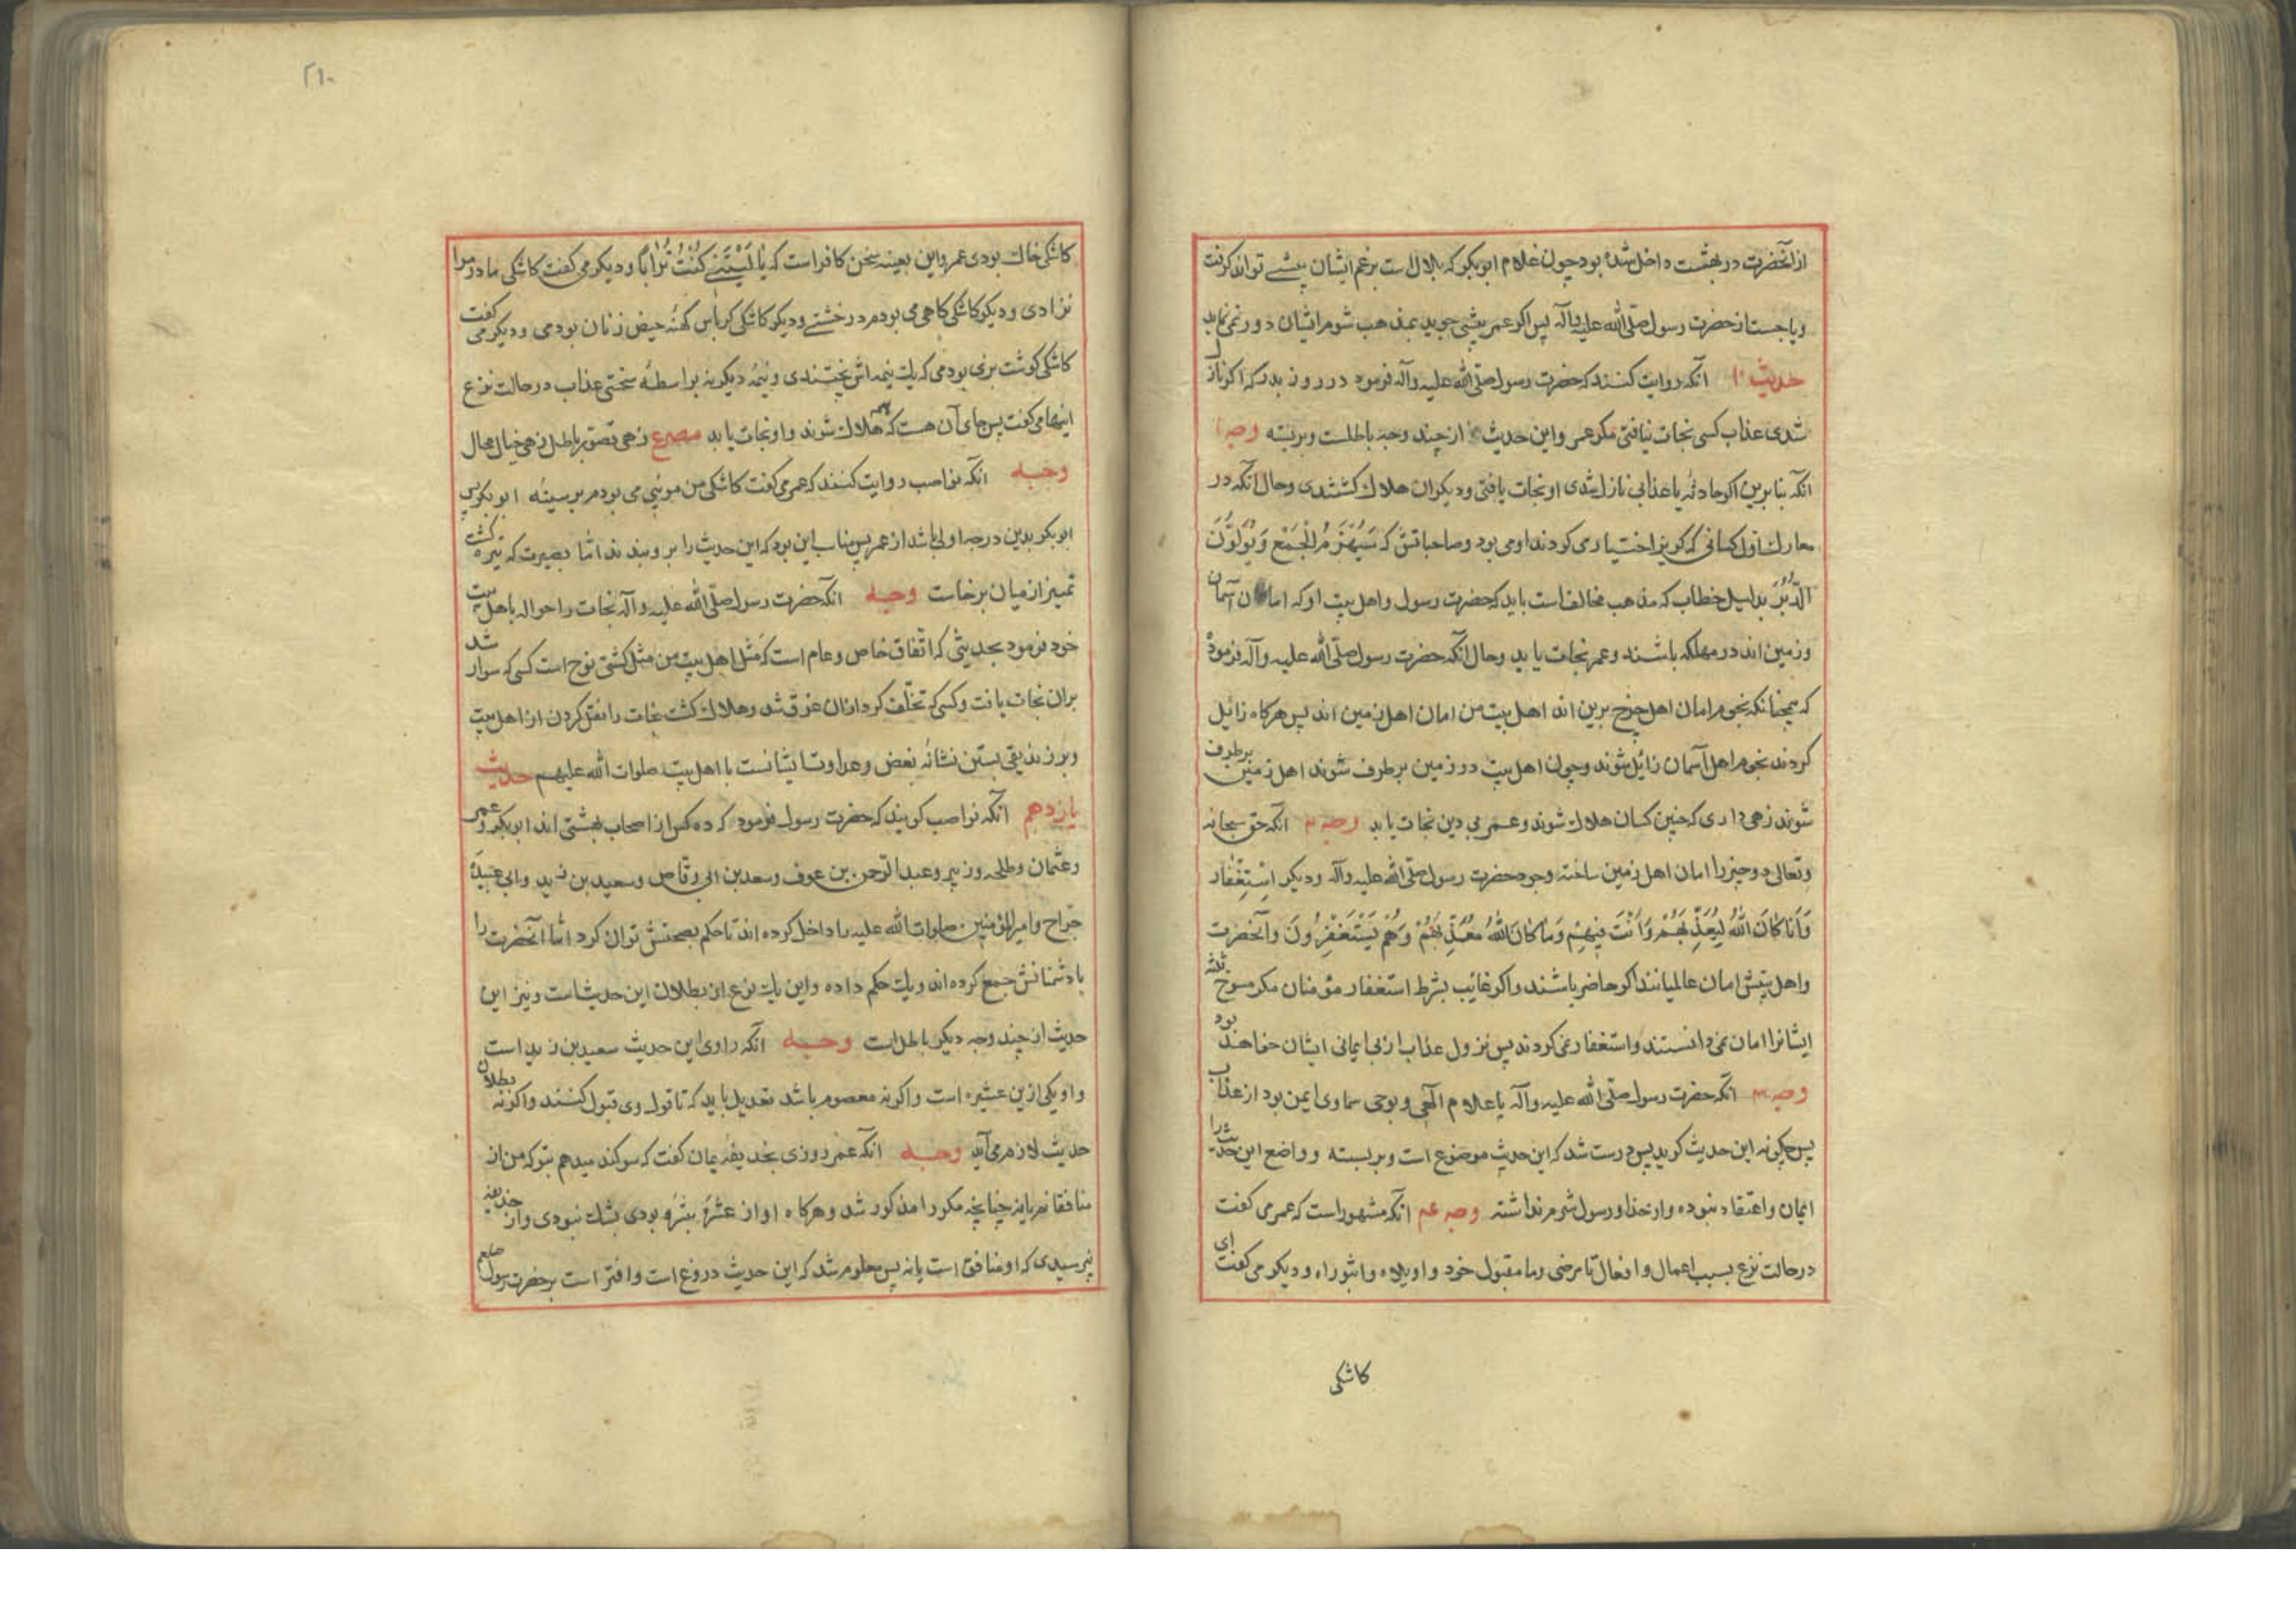 از آنحضرت در بهشت داخل شده بود چون غلام ابوبکر که بلال است بزعم ایشان پیشی تواند کرفت
ویا جست از حضرت رسول صلّی الله علیه وآله پس اکر عمر پیشی جوید بمذهب شوم ایشان دور نمی نماید
حدیث ۱۰ آنکه روایت کنند که حضرت رسول صلّی الله علیه وآله فرمود در روز بدر که اکر نازل
شدی عذاب کسی نجات نیافتی مکر عمر واین حدیث از چند وجه باطلست وبربسته وجه ۱
انکه بنا برین اکر حادثه یا عذابی نازل شدی او نجات یافتی ودیکران هلاک کشتندی وحال آنکه در
معارک اول کسانی که کریز اختیار می کردند او می بود وصاحبانش که سَیُهْزَمُ الْجَمْعُ وَیُوَلّونَ
الدُّبُرَ بدلیل خطاب که مذهب مخالف است باید که حضرت رسول واهل بیت او که امان آسمان
وزمین اند در مهلکه باشند وعمر نجات یابد وحال آنکه حضرت رسول صلّی الله علیه وآله فرموده
که همچنانکه نجوم امان اهل چرخ برین اند اهل بیت من امان اهل زمین اند پس هرکاه زائل
کردند نجوم اهل آسمان زائل شوند وچون اهل بیت در زمین برطرف شوند اهل زمین برطرف
شوند زهی داری که چنین کسان هلاک شوند وعمر بی دین نجات یابد وجه ۲ آنکه حق سبحانه
وتعالی دو چیز را امان اهل زمین ساخته وجود حضرت رسول صلّی الله علیه وآله ودیکر اِسْتِغْفار
وَمَا کَانَ اللّٰهُ لِیُعَذِّبَهُمْ وَاَنْتَ فِیهِمْ وَمَا کَانَ اللّٰهُ مُعَذِّبَهُمْ وَهُمْ یَسْتَغْفِرُونَ وآنحضرت
واهل بیتش امان عالمیانند اکر حاضر باشند واکر غائب بشرط استغفار مؤمنان مکر ثلثه
ایشانرا امان نمی دانستند واستغفار نمی کردند پس نزول عذاب از بی ایمانی ایشان خواهد بود
وجه ۳ آنکه حضرت رسول صلّی الله علیه وآله یا علام الهی وبوحی سماوی ایمن بود از عذاب
پس چکونه این حدیث کوید پس درست شد که این حدیث موضوع است وبربسته وواضع این حدیث را
ایمان واعتقاد نبوده واز خدا ورسول شرم نداشته وجه ۴ آنکه مشهور است که عمر می کفت
در حالت نزع بسبب اعمال وافعال نامرضی ونامقبول خود واویلاه واثبوراه ودیکر می کفت ای
کاشکی
۲۱۰
کاشکی خاک بودی عمر واین بعینه سخن کافر است که یَا لَیْتَنِی کُنْتُ تُرَابًا ودیکر می کفت کاشکی مادر مرا
نزادی ودیکر کاشکی کاهی می بودم در خشتی ودیکر کاشکی کرباس کهنه حیض زنان بودمی ودیکر می کفت
کاشکی کوشت بزی بودمی که یک نیمه اش پختندی ونیمه دیکر نه بواسطه سختی عذاب در حالت نزع
اینها می کفت پس جای آن هست که همه هلاک شوند واو نجات یابد مصرع زهی تصور باطل زهی خیال محال
وجه انکه نواصب روایت کنند که عمر می کفت کاشکی من موئی می بودم بر سینه ابوبکر پس
ابوبکر بدین درجه اولی باشد از عمر پس مناسب این بود که این حدیث را برو بندند اما بصیرت که تیره کشت
تمییز از میان برخاست وجه آنکه حضرت رسول صلّی الله علیه وآله نجات را حواله باهل بیت
خود فرمود بحدیثی که اتّفاق خاص وعام است که مَثل اهل بیت من مثل کشتی نوح است کسی که سوار شد
بران نجات یافت وکسی که تخلّف کرد ازان غرق شد وهلاک کشت نجات را نقل کردن از اهل بیت
وبر زندیقی بستن نشانه بغض وعداوت ایشانست با اهل بیت صلوات الله علیهم حدیث
یازدهم آنکه نواصب کویند که حضرت رسول فرمود که ده کس از اصحاب بهشتی اند ابوبکر وعمر
وعثمان وطلحه وزبیر وعبد الرّحمن بن عوف وسعد بن ابی وقّاص وسعید بن زید وابی عبیدة
جرّاح وامیر المؤمنین صلوات الله علیه را داخل کرده اند تا حکم بصحتش توان کرد امّا آنحضرت را
با دشمنانش جمع کرده اند ویک حکم داده واین یک نوع از بطلان این حدیث است ونیز این
حدیث از چند وجه دیکر باطل است وجه آنکه راوی این حدیث سعید بن زید است
واو یکی ازین عشیره است واکر نه معصوم باشد تعدیل باید که تا قول وی قبول کنند واکر نه بطلان
حدیث لازم می آید وجه آنکه عمر روزی بحذیفه یمان کفت که سوکند میدهم بتو که من از
منافقانم یا نه چنانچه مکرر مذکور شد وهرکاه او از عشرهٔ مبشره بودی بشک نبودی واز حذیفه
نپرسیدی که او منافق است یا نه پس معلوم شد که این حدیث دروغ است وافترا است بر حضرت رسول صلعم